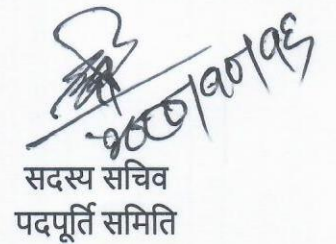 २०८०/१०/१६
सदस्य सचिव
पदपूर्ति समिति